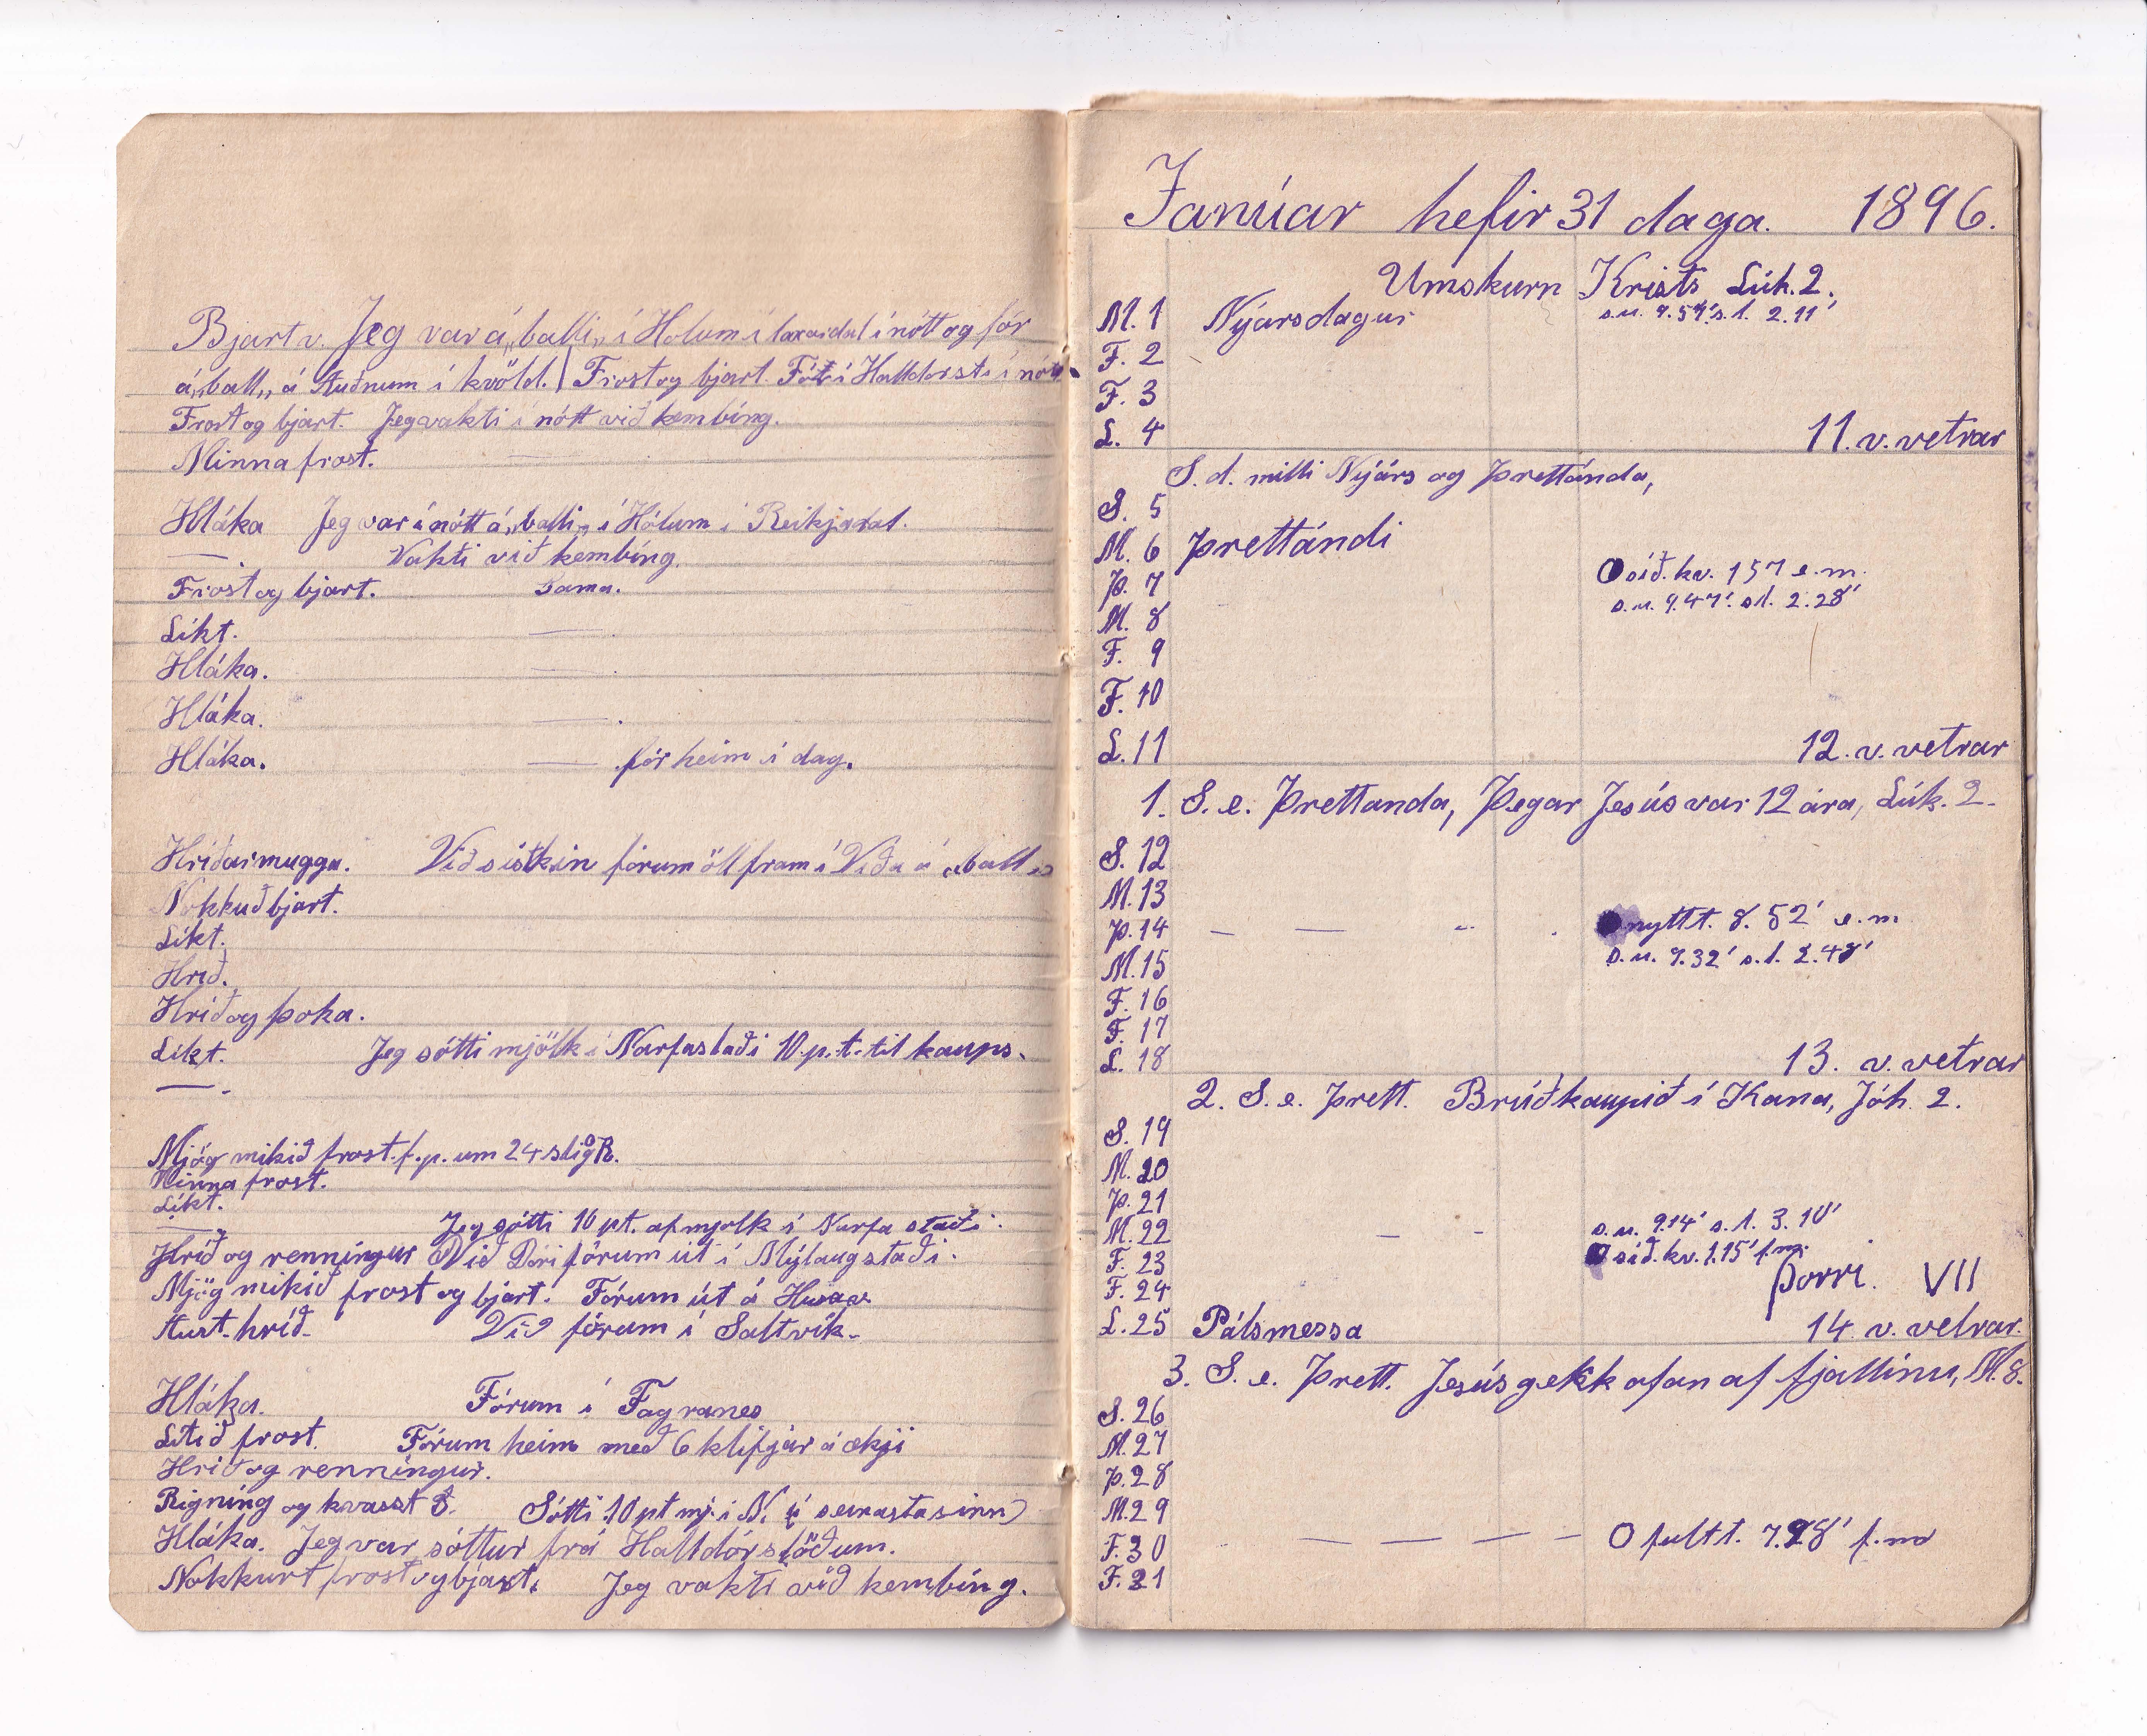 Bjart v. Jeg var á „balli„ í Hólum í laxardal í nótt og fór
á „ball„ á Auðnum í kvöld. | Frost og bjart. Fór í Halldórsst. í nótt.
Frost og bjart. Jeg vakti í nótt við kembing.
Minna frost.
Hláka Jeg var í nótt á „balli„ í Hólum í Reikjadal.
— Vakti við kembing.
Frost og bjart. Sama.
Líkt. —
Hláka. — .
Hláka. — .
Hláka. — . fór heim í dag.
Hríðarmugga. Við sistkin fórum öll fram í Víða á „ball„
Nokkuð bjart.
Líkt.
Hríð.
Hríð og þoka.
Líkt. Jeg sótti mjólk í Narfastaði 10. p.t. til kaups.
— .
Mjög mikið frost. f.p. um 24 stig R.
Minna frost.
Líkt.
— Jeg sótti 10 pt. af mjolk í Narfa staði.
Hríð og renningur Við Dóri fórum út í Mýlaugstaði.
Mjög mikið frost og bjart. Fórum út á Húsav.
Aust-hríð. Við fórum í Saltvík.
Hláka. Fórum í Fagranes
Lítið frost. Fórum heim með 6 klifjar á ækji
Hríð og renningur.
Rigning og kvasst S. Sótti 10 pt mj. í N. (í seinasta sinn)
Hláka. Jeg var sóttur frá Halldórstöðum.
Nokkurt frost og bjart. Jeg vakti við kembing.
Janúar hefir 31 daga. 1896.
Umskurn Krists Lúk. 2.
M. 1 Nýársdagur s.u. 9.54' s.l. 2.11'
F. 2
F. 3
L. 4 11. v. vetrar
S. d. milli Nýárs og Þrettánda,
S. 5
M. 6 Þrettándi
Þ. 7 síð. kv. 1 57 e.m.
M. 8 s.u. 9.47'. s.l. 2.28'
F. 9
F. 10
L. 11 12. v. vetrar
1. S. e. Þrettanda, Þegar Jesús var 12 ára, Lúk. 2.
S. 12
M. 13
Þ. 14 — — „ . nýtt t. 8. 52' e.m
M. 15 s.u. 9.32' s.l. 2.48'
F. 16
F. 17
L. 18 13. v. vetrar
2. S. e. Þrett. Brúðkaupið í Kana, Jóh. 2.
S. 19
M. 20
Þ. 21
M. 22 — - s.u. 9.14' s.l. 3.10'
F. 23 síð. kv. 1.15' f.m.
F. 24 Þorri. VII
L. 25 Pálsmessa 14. v. vetrar.
3. S. e. Þrett. Jesús gekk ofan af fjallinu, M. 8.
S. 26
M. 27
Þ. 28
M. 29
F. 30 — — — — O fullt t. 7.28' f.m
F. 31